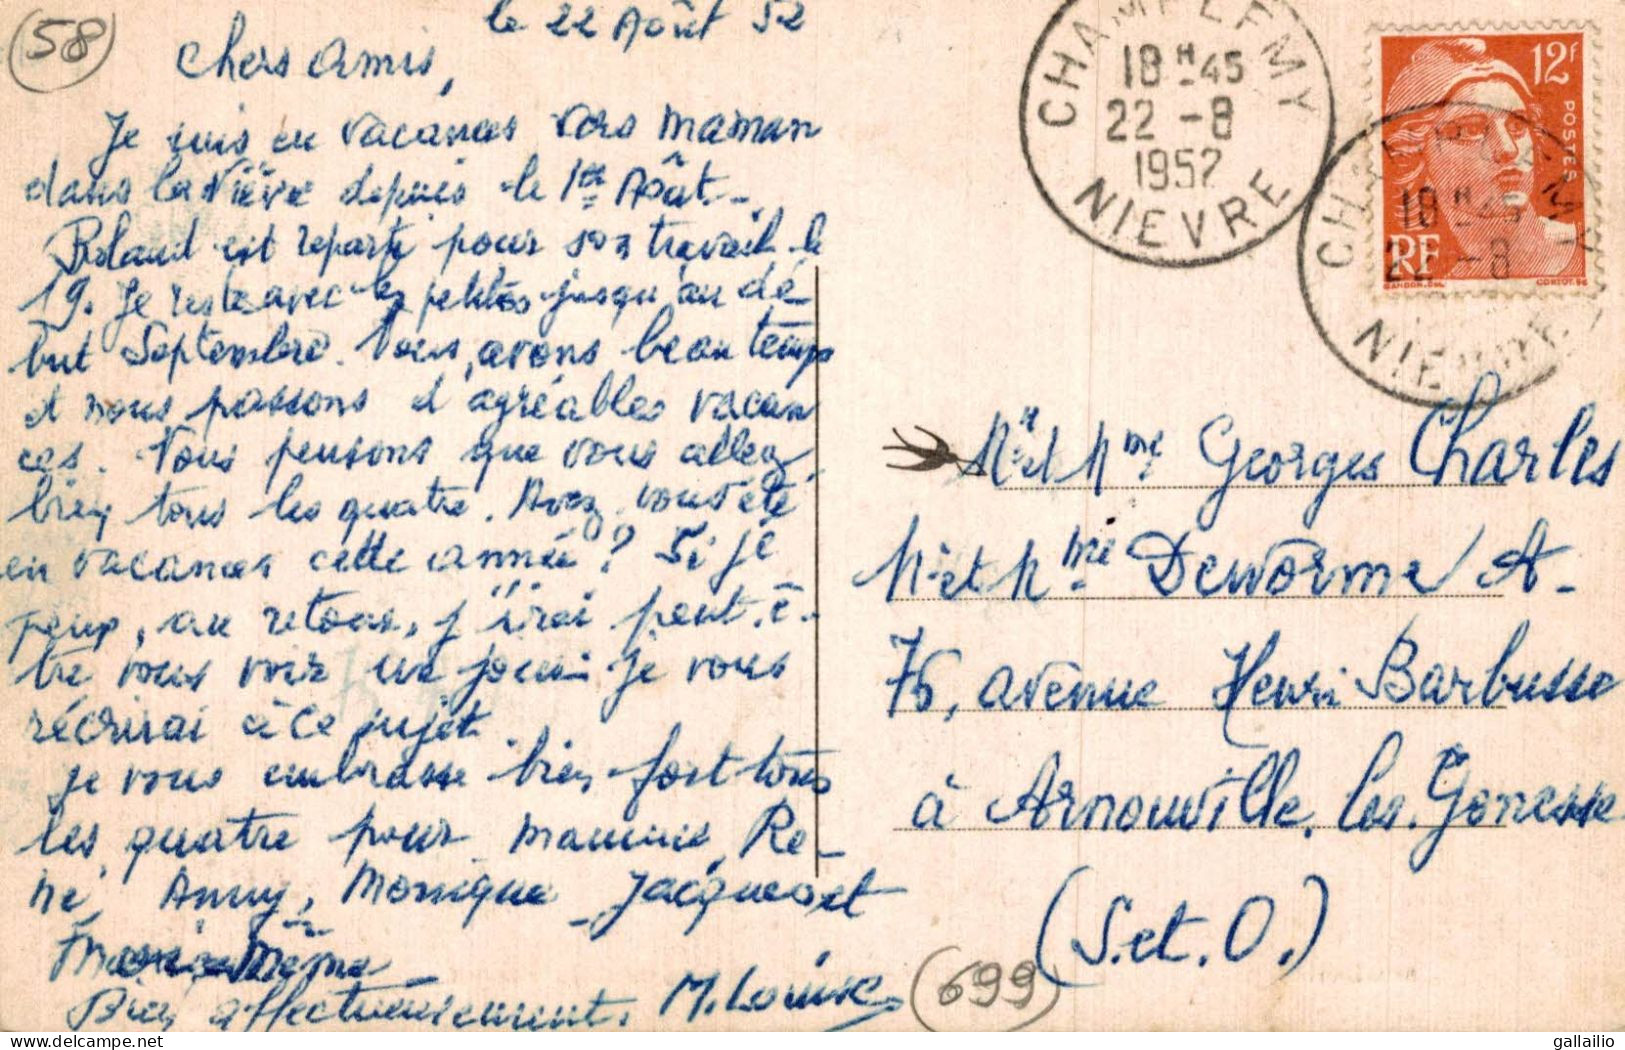 58
le 22 Août 52
Chers Amis,
Je suis en vacances vers maman
dans la Nièvre depuis le 1er Août.
Roland est reparti pour son travail le
19. Je reste avec les petites jusqu'au dé-
but Septembre. Nous avons beau temps
et nous passons d'agréables vacan
ces. Nous pensons que vous allez
bien tous les quatre. Avez vous été
en vacances cette année? Si je
peux, au retour, j'irai peut-ê-
tre vous voir un jour. Je vous
récrirai à ce sujet.
Je vous embrasse bien fort tous
les quatre pour maman, Re-
né, Anny, Monique, Jacques et
Mémé
Bien affectueusement. M. Louise
CHAMPLEMY
18H-45
22-8
1957
NIEVRE
12f
POSTES
RF
GANDON.DEL
CORTOT.SC
18H-45
22-8
NIEVRE
Mr et Mme Georges Charles
Mr et Mme Deworme A-
76, avenue Henri Barbusse
à Arnouville.les.Gonesse
(S.et.O.)
699
gallailio